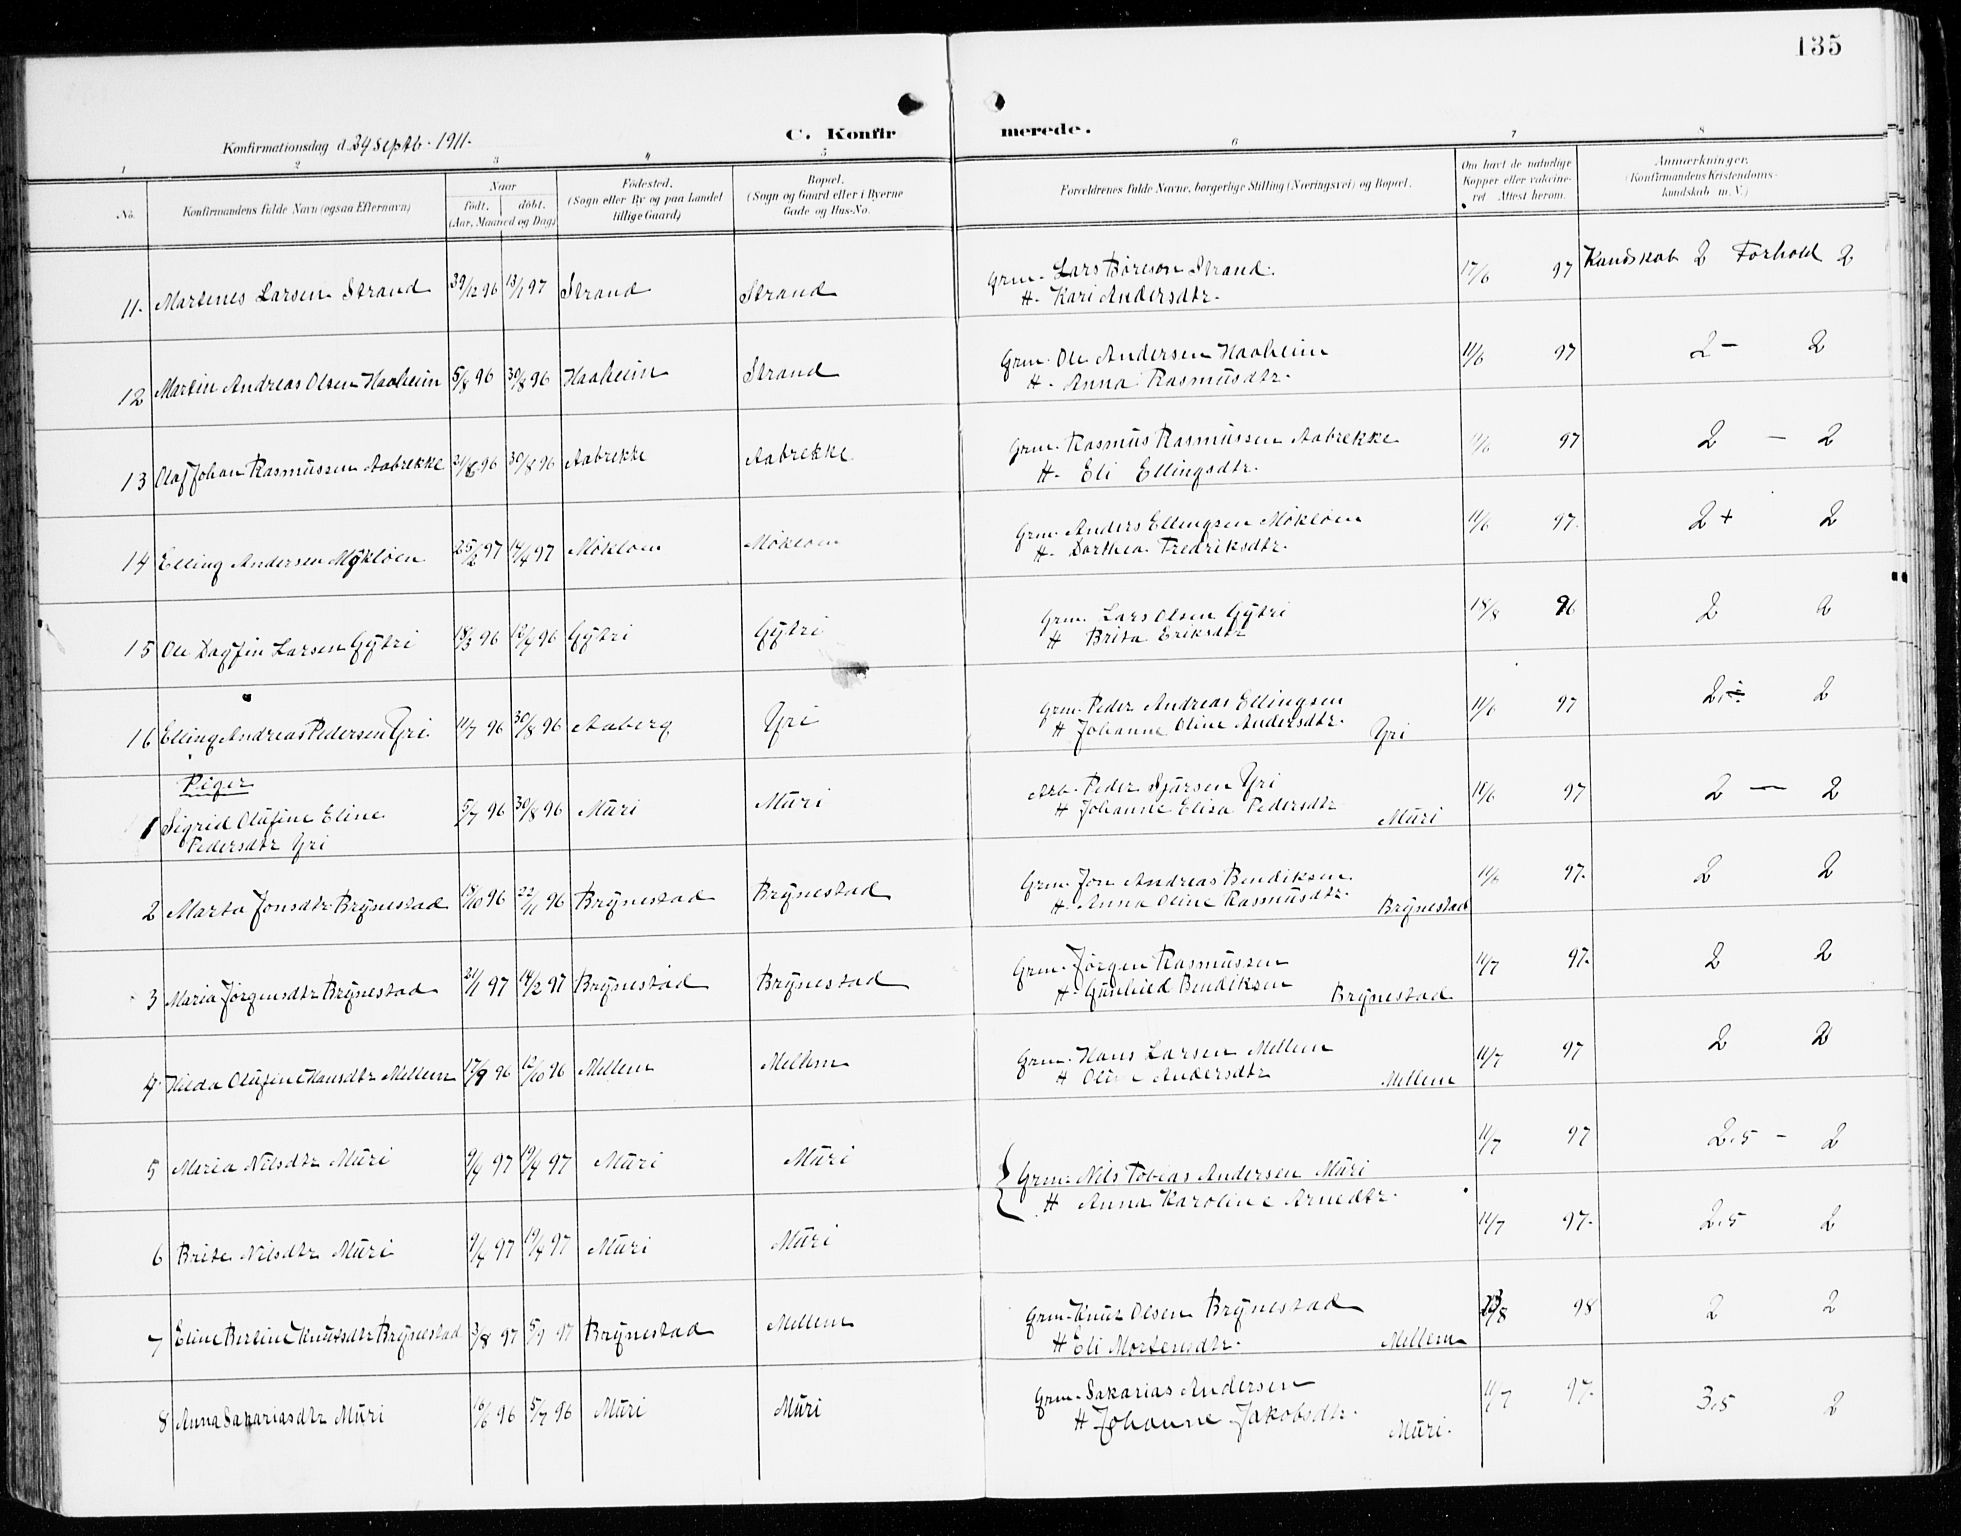 135
C. Konfirmerede.
Konfirmationsdag d. 24 Septb. 1911.
1 2 3 4 5 6 7 8
No. Konfirmandens fulde Navn (ogsaa Efternavn) Naar født. døbt. (Aar, Maaned og Dag) Fødested. (Sogn eller By og paa Landet tillige Gaard) Bopæl. (Sogn og Gaard eller i Byerne Gade og Hus-No. Forældrenes fulde Navne, borgerlige Stilling (Næringsvei) og Bopæl. Om havt de naturlige Kopper eller vakcineret Attest herom. Anmærkninger. (Konfirmandens Kristendomskundskab m. V.)
11. Martines Larsen Strand 30/12 96 13/1 97 Strand Strand Grm. Lars Børeson Strand. 17/6 97 Kundskab 2 Forhold 2
H. Kari Andersdtr.
12 Martin Andreas Olsen Haaheim 5/8 96 30/8 96 Haaheim Strand Grm. Ole Andersen Haaheim 11/6 97 2 - 2
H. Anna Rasmusdtr.
13 Olaf Johan Rasmussen Aabrekke 21/8 96 30/8 96 Aabrekke Aabrekke Grm. Rasmus Rasmussen Aabrekke 11/6 97 2 - 2
H. Eli Ellingsdtr.
14 Elling Andersen Mykløen 25/2 97 17/4 97 Møkløen Møkløen Grm. Anders Ellingsen Møkløen 11/6 97. 2 + 2
H. Dorthea Fredriksdtr.
15 Ole Dagfin Larsen Gytri 18/3 96 96 Gytri Gytri Grm. Lars Olsen Gytri 18/8 96 2 2
H Brita Eriksdtr
16 Elling Andreas Pedersen Yri 11/7 96 30/8 96 Aaberg Yri Grm. Peder Andreas Ellingsen 11/6 97 2 ÷ 2
H Johanne Oline Andersdtr. Yri
Piger
1 Sigrid Olufine Eline 5/7 96 30/8 96 Muri Muri Arb. Peder Sjursen Yri 97 2 - 2
Pedersdtr Yri H Johanne Elisa Pedersdtr Muri
2 Marta Jonsdtr Brynestad 96 22/11 96 Brynestad Brynestad Grm. Jon Andreas Bendiksen 11/6 97. 2 2
H. Anna Oline Rasmusdtr. Brynestad
3 Maria Jørgensdtr Brynestad 21/1 97 14/2 97 Brynestad Brynestad Grm. Jørgen Rasmussen 11/7 97. 2 2
H. Gunhild Bendiksen Brynestad
4. Hilda Olufine Hansdtr Mellem 17/9 96 12/10 96 Mellem Mellem Grm. Hans Larsen Mellem 11/7 97 2 2
H Oline Andersdtr Mellem
5 Maria Nilsdtr Muri 97 19/4 97 Muri Muri Grm. Nils Tobias Andersen Muri 11/7 97 2,5 - 2
H Anna Karoline Arnedtr.
6 Brite Nilsdtr Muri 97 19/4 97 Muri Muri 11/7 97. 2,5 2
7 Eline Bertine Knutsdtr Brynestad 3/8 97 5/9 97 Brynestad Mellem Grm. Knut Olsen Brynestad 98 2 2
H Eli Mortensdtr. Mellem
8 Anna Sakariasdtr Muri 16/6 96 5/7 96 Muri Muri Grm. Sakarias Andersen 11/7 97. 3,5 2
H Johanne Jakobsdtr. Muri.